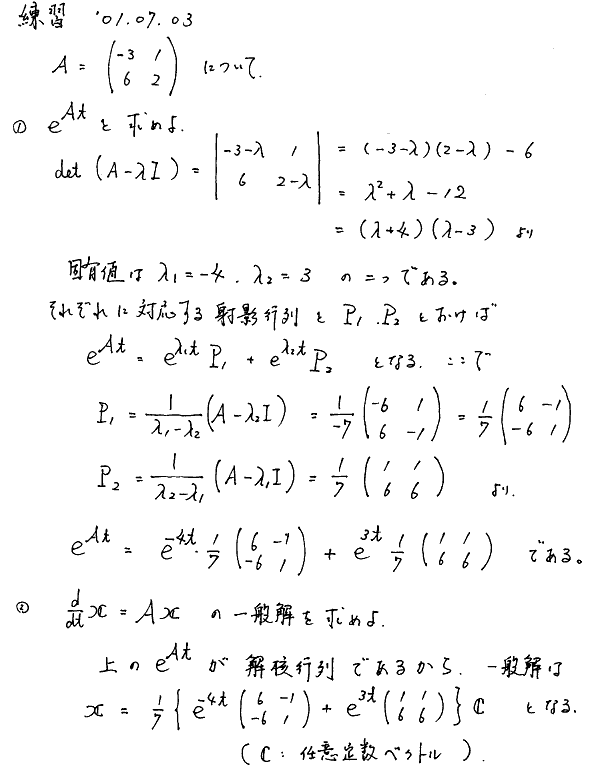 練習 '01.07.03
A = \begin{pmatrix} -3 & 1 \\ 6 & 2 \end{pmatrix} について.
① e^{At} を求めよ.
det (A-λI) = \begin{vmatrix} -3-λ & 1 \\ 6 & 2-λ \end{vmatrix} = (-3-λ)(2-λ) - 6
= λ^2 + λ - 12
= (λ+4)(λ-3) より
固有値は λ_1=-4 . λ_2=3 の二つである。
それぞれに対応する射影行列を P_1 . P_2 とおけば
e^{At} = e^{λ_1t} P_1 + e^{λ_2t} P_2 となる. ここで
P_1 = \frac{1}{λ_1-λ_2} (A-λ_2I) = \frac{1}{-7} \begin{pmatrix} -6 & 1 \\ 6 & -1 \end{pmatrix} = \frac{1}{7} \begin{pmatrix} 6 & -1 \\ -6 & 1 \end{pmatrix}
P_2 = \frac{1}{λ_2-λ_1} (A-λ_1I) = \frac{1}{7} \begin{pmatrix} 1 & 1 \\ 6 & 6 \end{pmatrix} より.
e^{At} = e^{-4t} · \frac{1}{7} \begin{pmatrix} 6 & -1 \\ -6 & 1 \end{pmatrix} + e^{3t} \frac{1}{7} \begin{pmatrix} 1 & 1 \\ 6 & 6 \end{pmatrix} である。
② \frac{d}{dt} x = A x の一般解を求めよ.
上の e^{At} が 解核行列であるから. 一般解は
x = \frac{1}{7} \{ e^{-4t} \begin{pmatrix} 6 & -1 \\ -6 & 1 \end{pmatrix} + e^{3t} \begin{pmatrix} 1 & 1 \\ 6 & 6 \end{pmatrix} \} ℂ となる.
(ℂ : 任意定数ベクトル ).